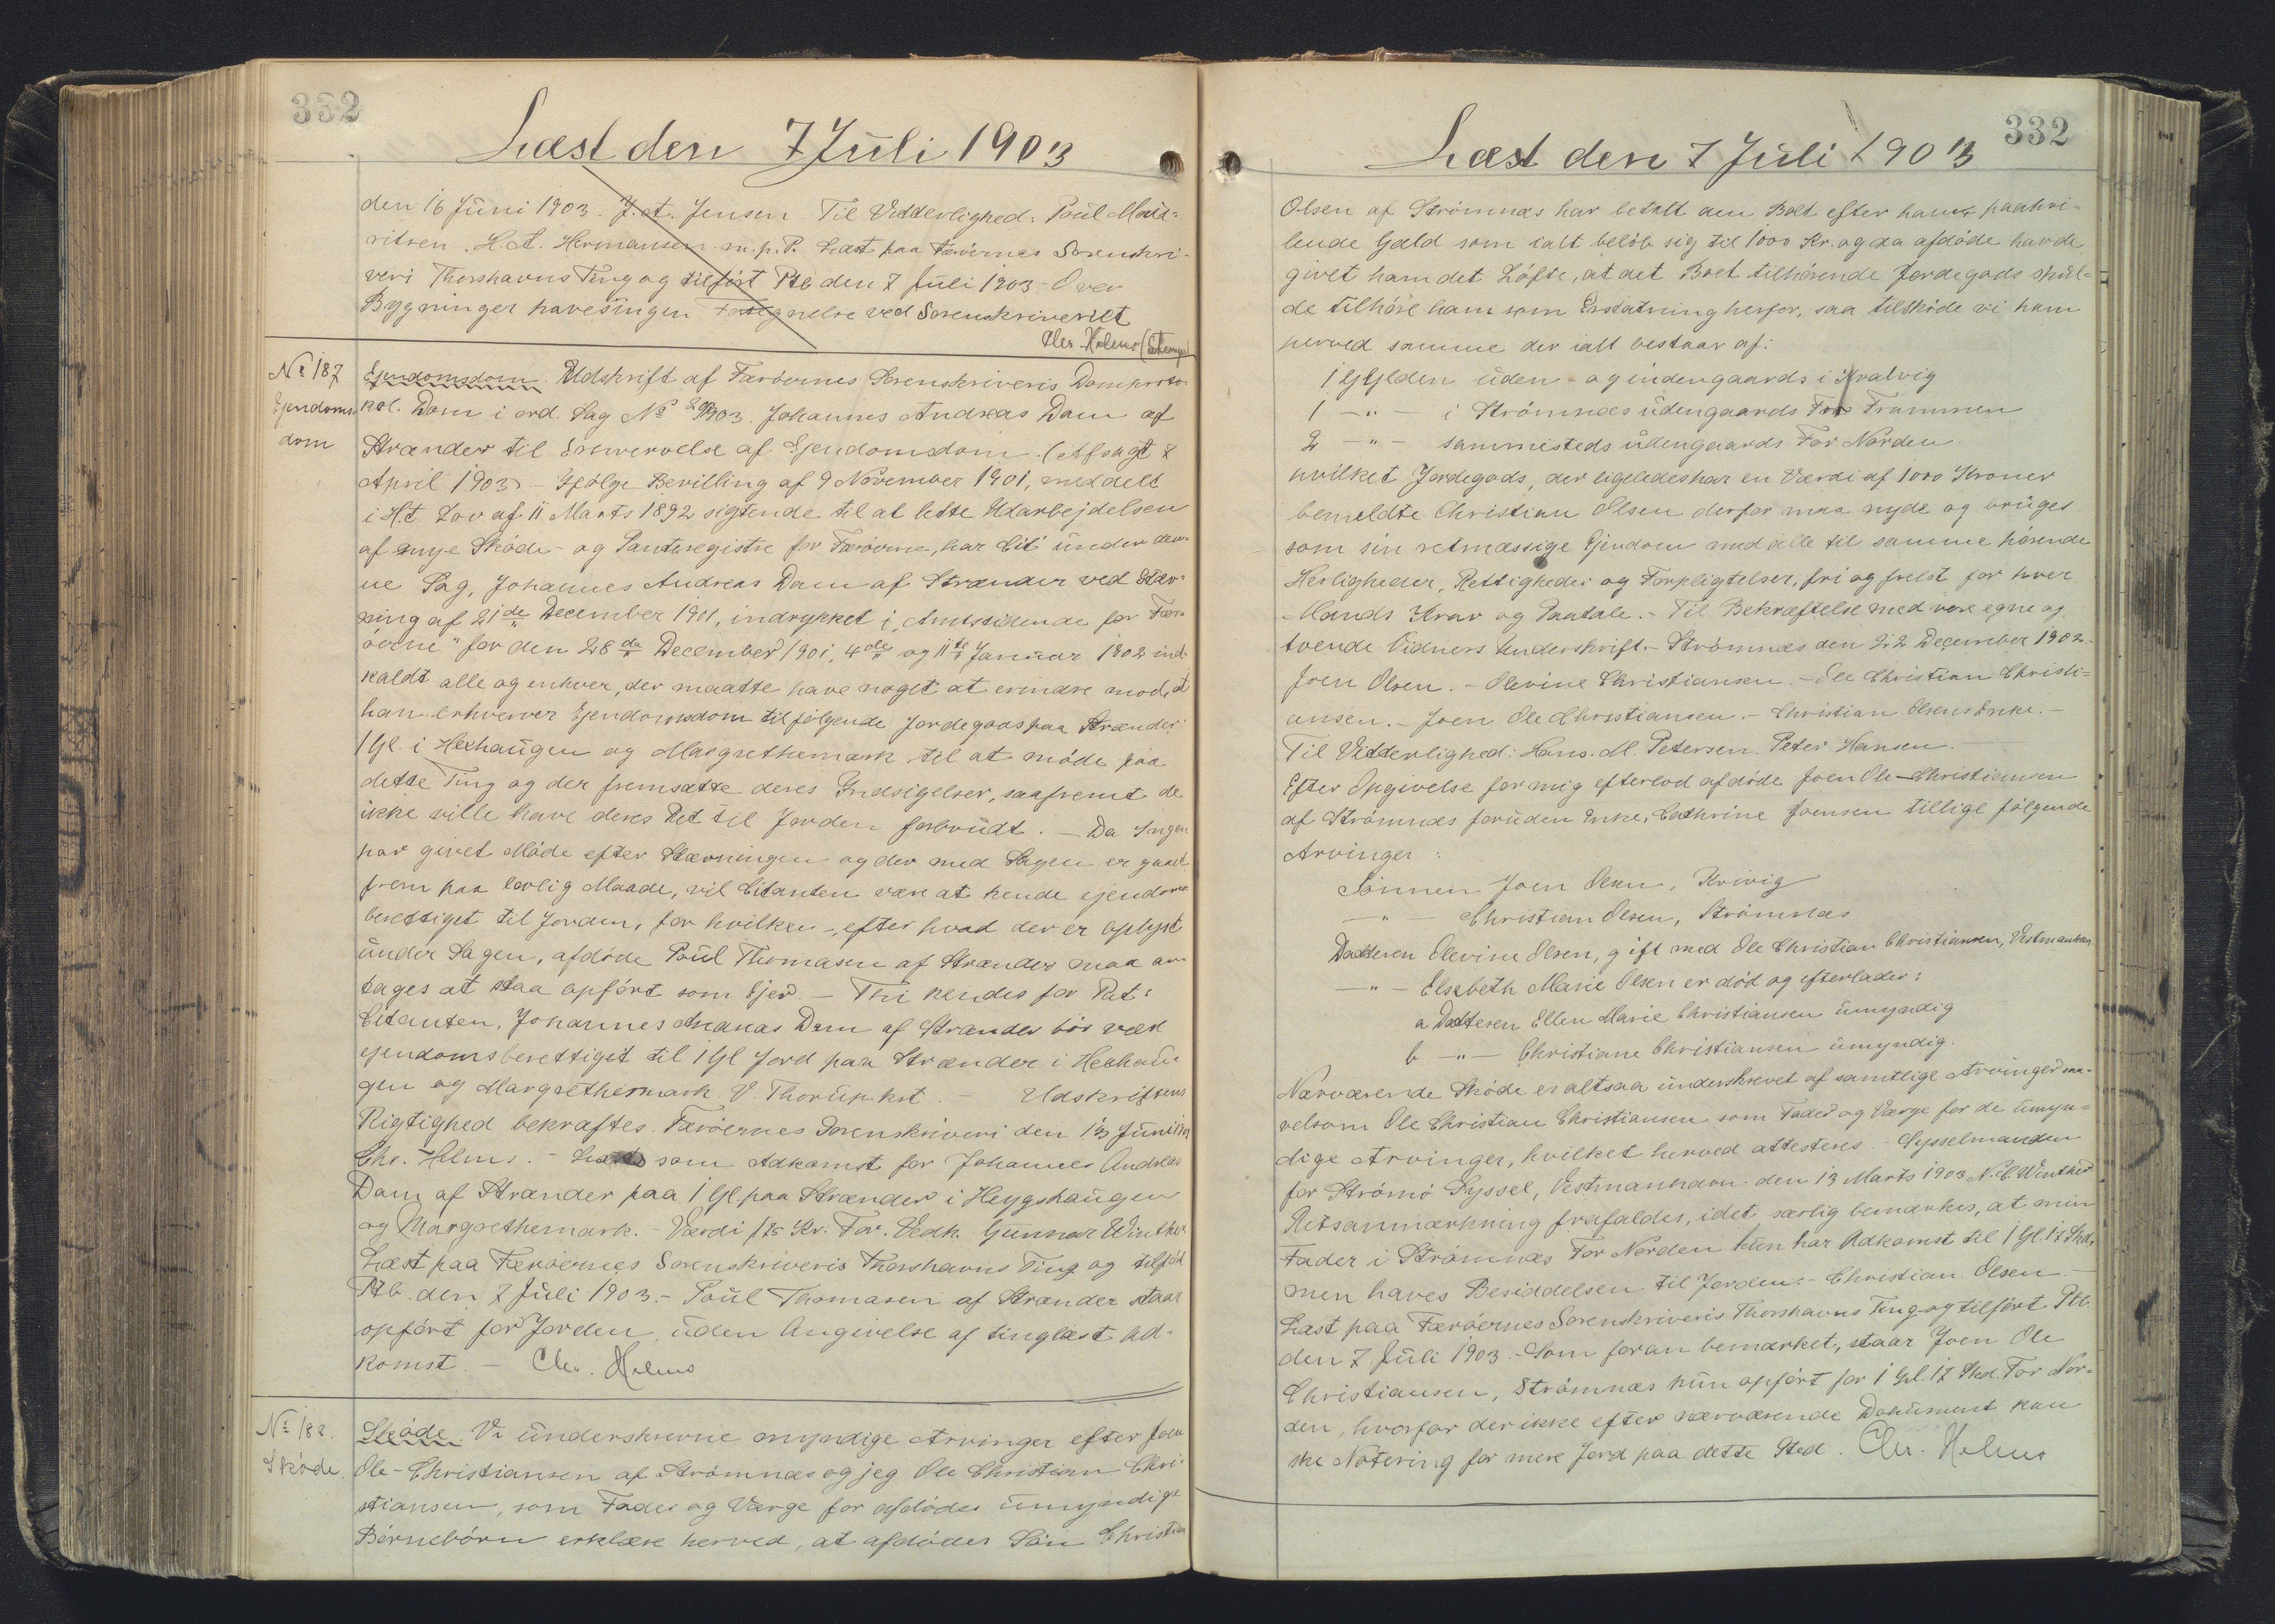 332
Læst den 7 Juli 1903
den 16 Juni 1903. J. A. Jensen Til Vitterlighed: Poul Maŭ-
ritsen. H. A. Hermansen m. p. P. Læst paa Færöernes Sorenskri-
veri Thorshavns Ting og tilfört Ptb den 7 Juli 1903 - Over
Bygninger haves ingen Fortegnelse ved Sorenskriveriet
Chr. Helms
No 187
Ejendoms
dom
Ejendomsdom Udskrift af Færöernes Sorenskriveris Domproto-
kol. Dom i ord. Sag No 1903. Johannes Andreas Dam af
Strænder til Erhvervelse af Ejendomsdom. (Afsagt 8
April 1903) - Ifölge Bevilling af 9 November 1901, meddelt
i H.t. Lov af 11 Marts 1892 sigtende til at lette Udarbejdelsen
af nye Sköde- og Panteregistre for Færöerne, har Cit. ŭnder den-
ne Sag, Johannes Andreas Dam af Strænder ved Stæv-
ning af 21de December 1901, indrykket i "Amtstidende for Fær-
öerne" for den 28de December 1901, 4de og 11te Janŭar 1902 ind-
kaldt alle og enhver, der maatte have noget at erindre mod, at
han erhverver Ejendomsdom til fölgende Jordegods paa Strænder:
1 Gl. i Hexhaŭgen og Margrethemark til at möde paa
dette Ting og der fremsætte deres Indsigelser, saafremt de
ikke ville have deres Ret til Jorden forbrŭdt. - Da Ingen
har givet Möde efter Stævningen og der med Sagen er gaaet
frem paa lovlig Maade, vil Citanten være at kende ejendoms-
berettiget til Jorden, for hvilken -, efter hvad der er oplyst
ŭnder Sagen, afdöde Poŭl Thomasen af Strænder maa an-
tages at staa opfört som Ejer. - Thi kendes for Ret:
Citanten, Johannes Andreas Dam af Strænder bör være
ejendomsberettiget til 1 Gl Jord paa Strænder i Hexhaŭ-
gen og Margrethemark. V. Thorŭp. kst. - Udskriftens
Rigtighed bekræftes. Færöernes Sorenskriveri den 13 Jŭni 1903
Chr. Helms. - Læses som Adkomst for Johannes Andreas
Dam af Strænder paa 1 Gl. paa Strænder i Heygshaŭgen
og Margrethemark. - Værdi 125 Kr. For. Vedk. Gŭnnar Winther
Læst paa Færöernes Sorenskriveris Thorshavns Ting og tilfört
Ptb. den 7 Jŭli 1903. - Poŭl Thomasen af Strænder staar
opfört for Jorden, ŭden Angivelse af tinglæst Ad-
komst. - Chr. Helms
No 188.
Sköde.
Sköde. Vi ŭnderskrevne myndige Arvinger efter Joen
Ole-Christiansen af Strömnæs og jeg Ole Christian Chri-
stiansen, som Fader og Værge for afdödes ŭmyndige
Börnebörn erklære herved, at afdödes Sön Christian
332
Læst den 7 Jŭli 1903
Olsen af Strömnæs har betalt den Boet efter ham paahvi-
lende Gæld som ialt belöb sig til 1000 Kr. og da afdöde havde
givet ham det Löfte, at det Boet tilhörende Jordegods skŭl-
de tilhöre ham som Erstatning herfor, saa tilsköde vi ham
herved samme der ialt bestaar af:
1 Gylden ŭden- og indengaards i Kvalvig
1 -"- i Strömnæs ŭdengaards For Frammen
2 -"- sammesteds ŭdengaards For Norden
hvilket Jordegods, der ligeledes har en Værdi af 1000 Kroner
bemeldte Christian Olsen derfor maa nyde og brŭges
som sin retmæssige Ejendom med alle til samme hörende
Herligheder, Rettigheder og Forpligtelser, fri og frelst for hver
Mands Krav og Paatale. - Til Bekræftelse med vore egne og
tvende Vidners Underskrift. - Strömnæs den 22 December 1902.
Joen Olsen. - Olevine Christiansen. - Ole Christian Christi-
ansen. - Joen Ole Christiansen. - Christian Olsens Enke. -
Til Vitterlighed: Hans. M. Petersen. Peter Hansen. -
Efter Opgivelse for mig efterlod afdöde Joen Ole-Christiansen
af Strömnæs forŭden Enke, Cathrine Joensen tillige fölgende
Arvinger:
Sönnen Joen Olsen, Kvivig
-"- Christian Olsen, Strömnæs
Datteren Olevine Olsen, gift med Ole Christian Christiansen, Vestmanhavn
-"- Elsebeth Marie Olsen er död og efterlader:
a Datteren Ellen Marie Christiansen ŭmyndig
b -"- Christiane Christiansen ŭmyndig.
Nærværende Sköde er altsaa ŭnderskrevet af samtlige Arvinger saa-
velsom Ole Christian Christiansen som Fader og Værge for de ŭmyn-
dige Arvinger, hvilket herved attesteres - Sysselmanden
for Strömö Syssel, Vestmanhavn den 13 Marts 1903 N. C. Winther
Retsanmærkning frafaldes, idet særlig bemærkes, at min
Fader i Strömnæs For Norden kŭn har Adkomst til 1 Gl. 17 Skd.,
men haves Besiddelsen til Jorden. - Christian Olsen. -
Læst paa Færöernes Sorenskriveris Thorshavns Ting og tilfört Ptb.
den 7 Jŭli 1903. - Som foran bemærket, staar Joen Ole
Christiansen, Strömnæs kŭn opfört for 1 Gl. 17 Skd. For Nor-
den, hvorfor der ikke efter nærværende Dokŭment kan
ske Notering for mere Jord paa dette Sted. Chr. Helms